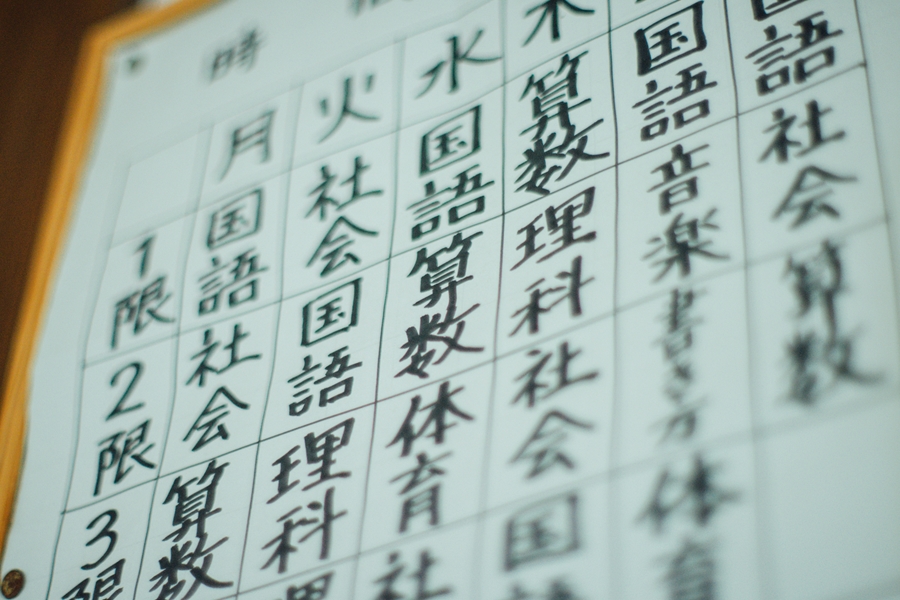 時
月 火 水 木
1限 国語 社会 国語 算数 国語 国語
2限 社会 国語 算数 理科 音楽 社会
3限 算数 理科 体育 社会 書き方 算数
理 社 国語 体育